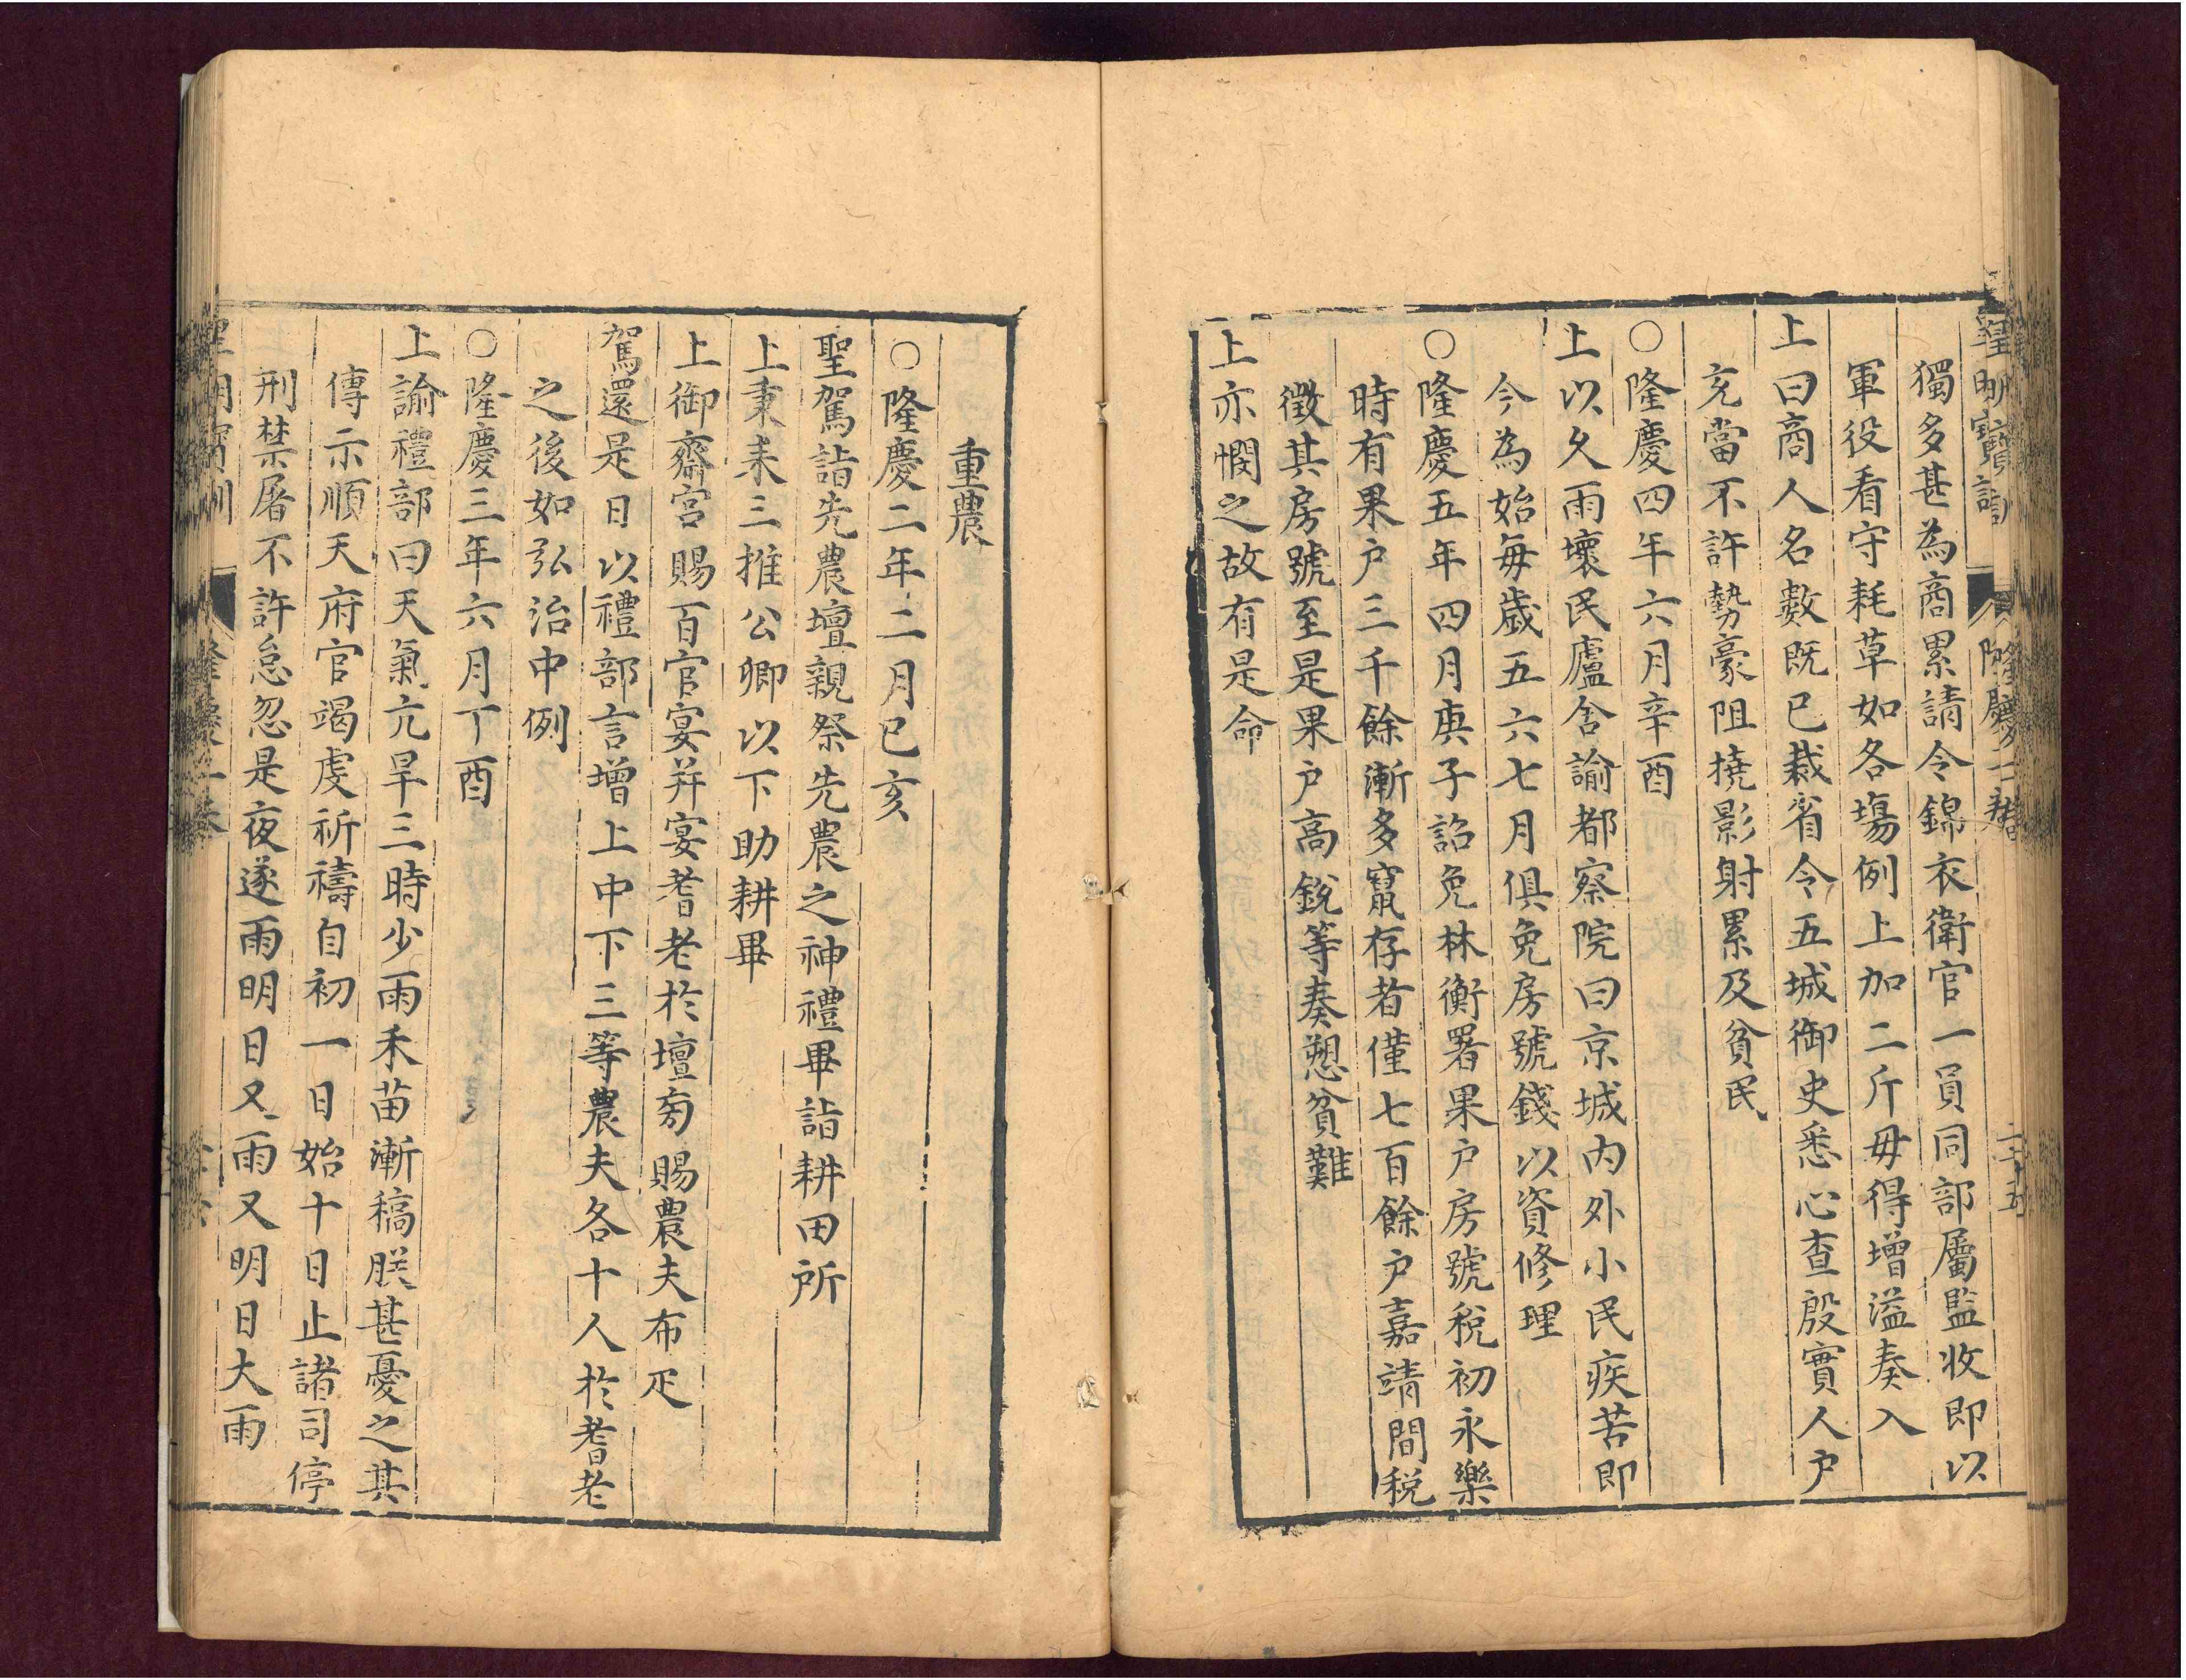 皇明寶訓　隆慶二卷　二十五
獨多甚為商累請令錦衣衛官一員同部屬監收即以
軍役看守耗草如各塲例上加二斤毋得增溢奏入
上曰商人名數既已裁省令五城御史悉心查殷實人户
充當不許勢豪阻撓影射累及貧民
○隆慶四年六月辛酉
上以久雨壞民廬舍諭都察院曰京城内外小民疾苦即
今為始每歲五六七月俱免房號錢以資修理
○隆慶五年四月庚子詔免林衡署果户房號稅初永樂
時有果户三千餘漸多竄存者僅七百餘户嘉靖間稅
徵其房號至是果户高銳等奏愬貧難
上亦憫之故有是命
重農
○隆慶二年二月己亥
聖駕詣先農壇親祭先農之神禮畢詣耕田所
上秉耒三推公卿以下助耕畢
上御齋宮賜百官宴并宴耆老於壇旁賜農夫布疋
駕還是日以禮部言增上中下三等農夫各十人於耆老
之後如弘治中例
○隆慶三年六月丁酉
上諭禮部曰天氣亢旱三時少雨禾苗漸稿朕甚憂之其
傳示順天府官竭虔祈禱自初一日始十日止諸司停
刑禁屠不許怠忽是夜遂雨明日又雨又明日大雨
皇明寶訓　隆慶二卷